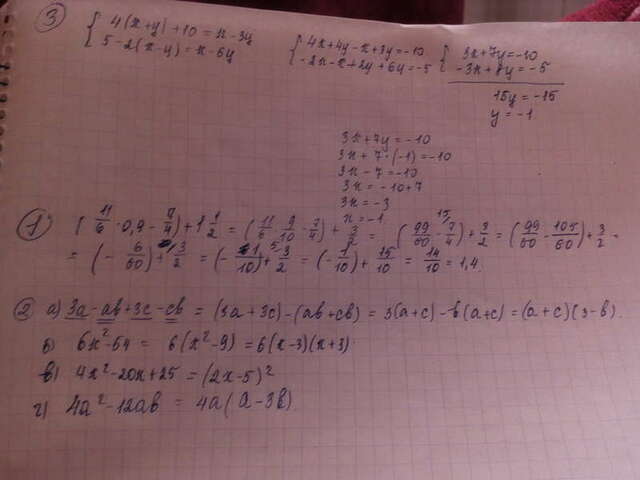 ③ { 4(x+y)+10=x-3y
5-2(x-y)=x-6y
{ 4x+4y-x+3y=-10
-2x-x+2y+6y=-5
{ 3x+7y=-10
-3x+8y=-5
15y=-15
y=-1
3x+7y=-10
3x+7·(-1)=-10
3x-7=-10
3x=-10+7
3x=-3
x=-1
① (11/6·0,9-7/4)+1 1/2=(11/6·9/10-7/4)+3/2=(99/60-7/4)+3/2=(99/60-105/60)+3/2=
=(-6/60)+3/2=(-1/10)+3/2=(-1/10)+15/10=14/10=1,4.
② а) 3a-ab+3c-cb=(3a+3c)-(ab+cb)=3(a+c)-b(a+c)=(a+c)(3-b).
б) 6x²-54=6(x²-9)=6(x-3)(x+3).
в) 4x²-20x+25=(2x-5)²
г) 4a²-12ab=4a(a-3b)